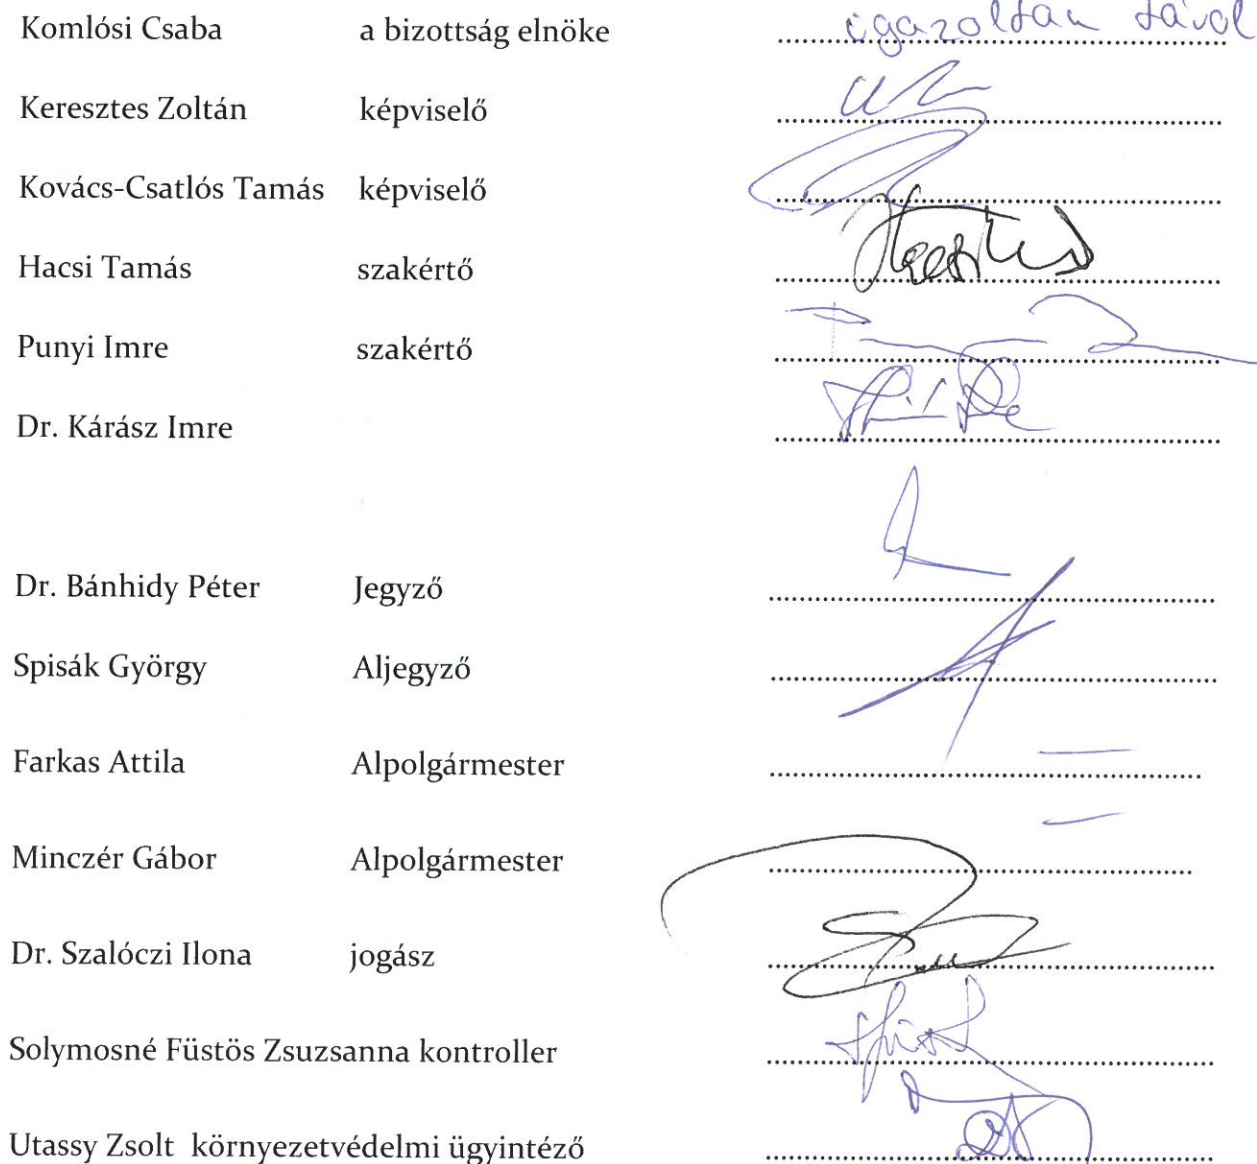 Komlósi Csaba a bizottság elnöke igazoltan távol
Keresztes Zoltán képviselő
Kovács-Csatlós Tamás képviselő
Hacsi Tamás szakértő
Punyi Imre szakértő
Dr. Kárász Imre
Dr. Bánhidy Péter Jegyző
Spisák György Aljegyző
Farkas Attila Alpolgármester —
Minczér Gábor Alpolgármester —
Dr. Szalóczi Ilona jogász
Solymosné Füstös Zsuzsanna kontroller
Utassy Zsolt környezetvédelmi ügyintéző